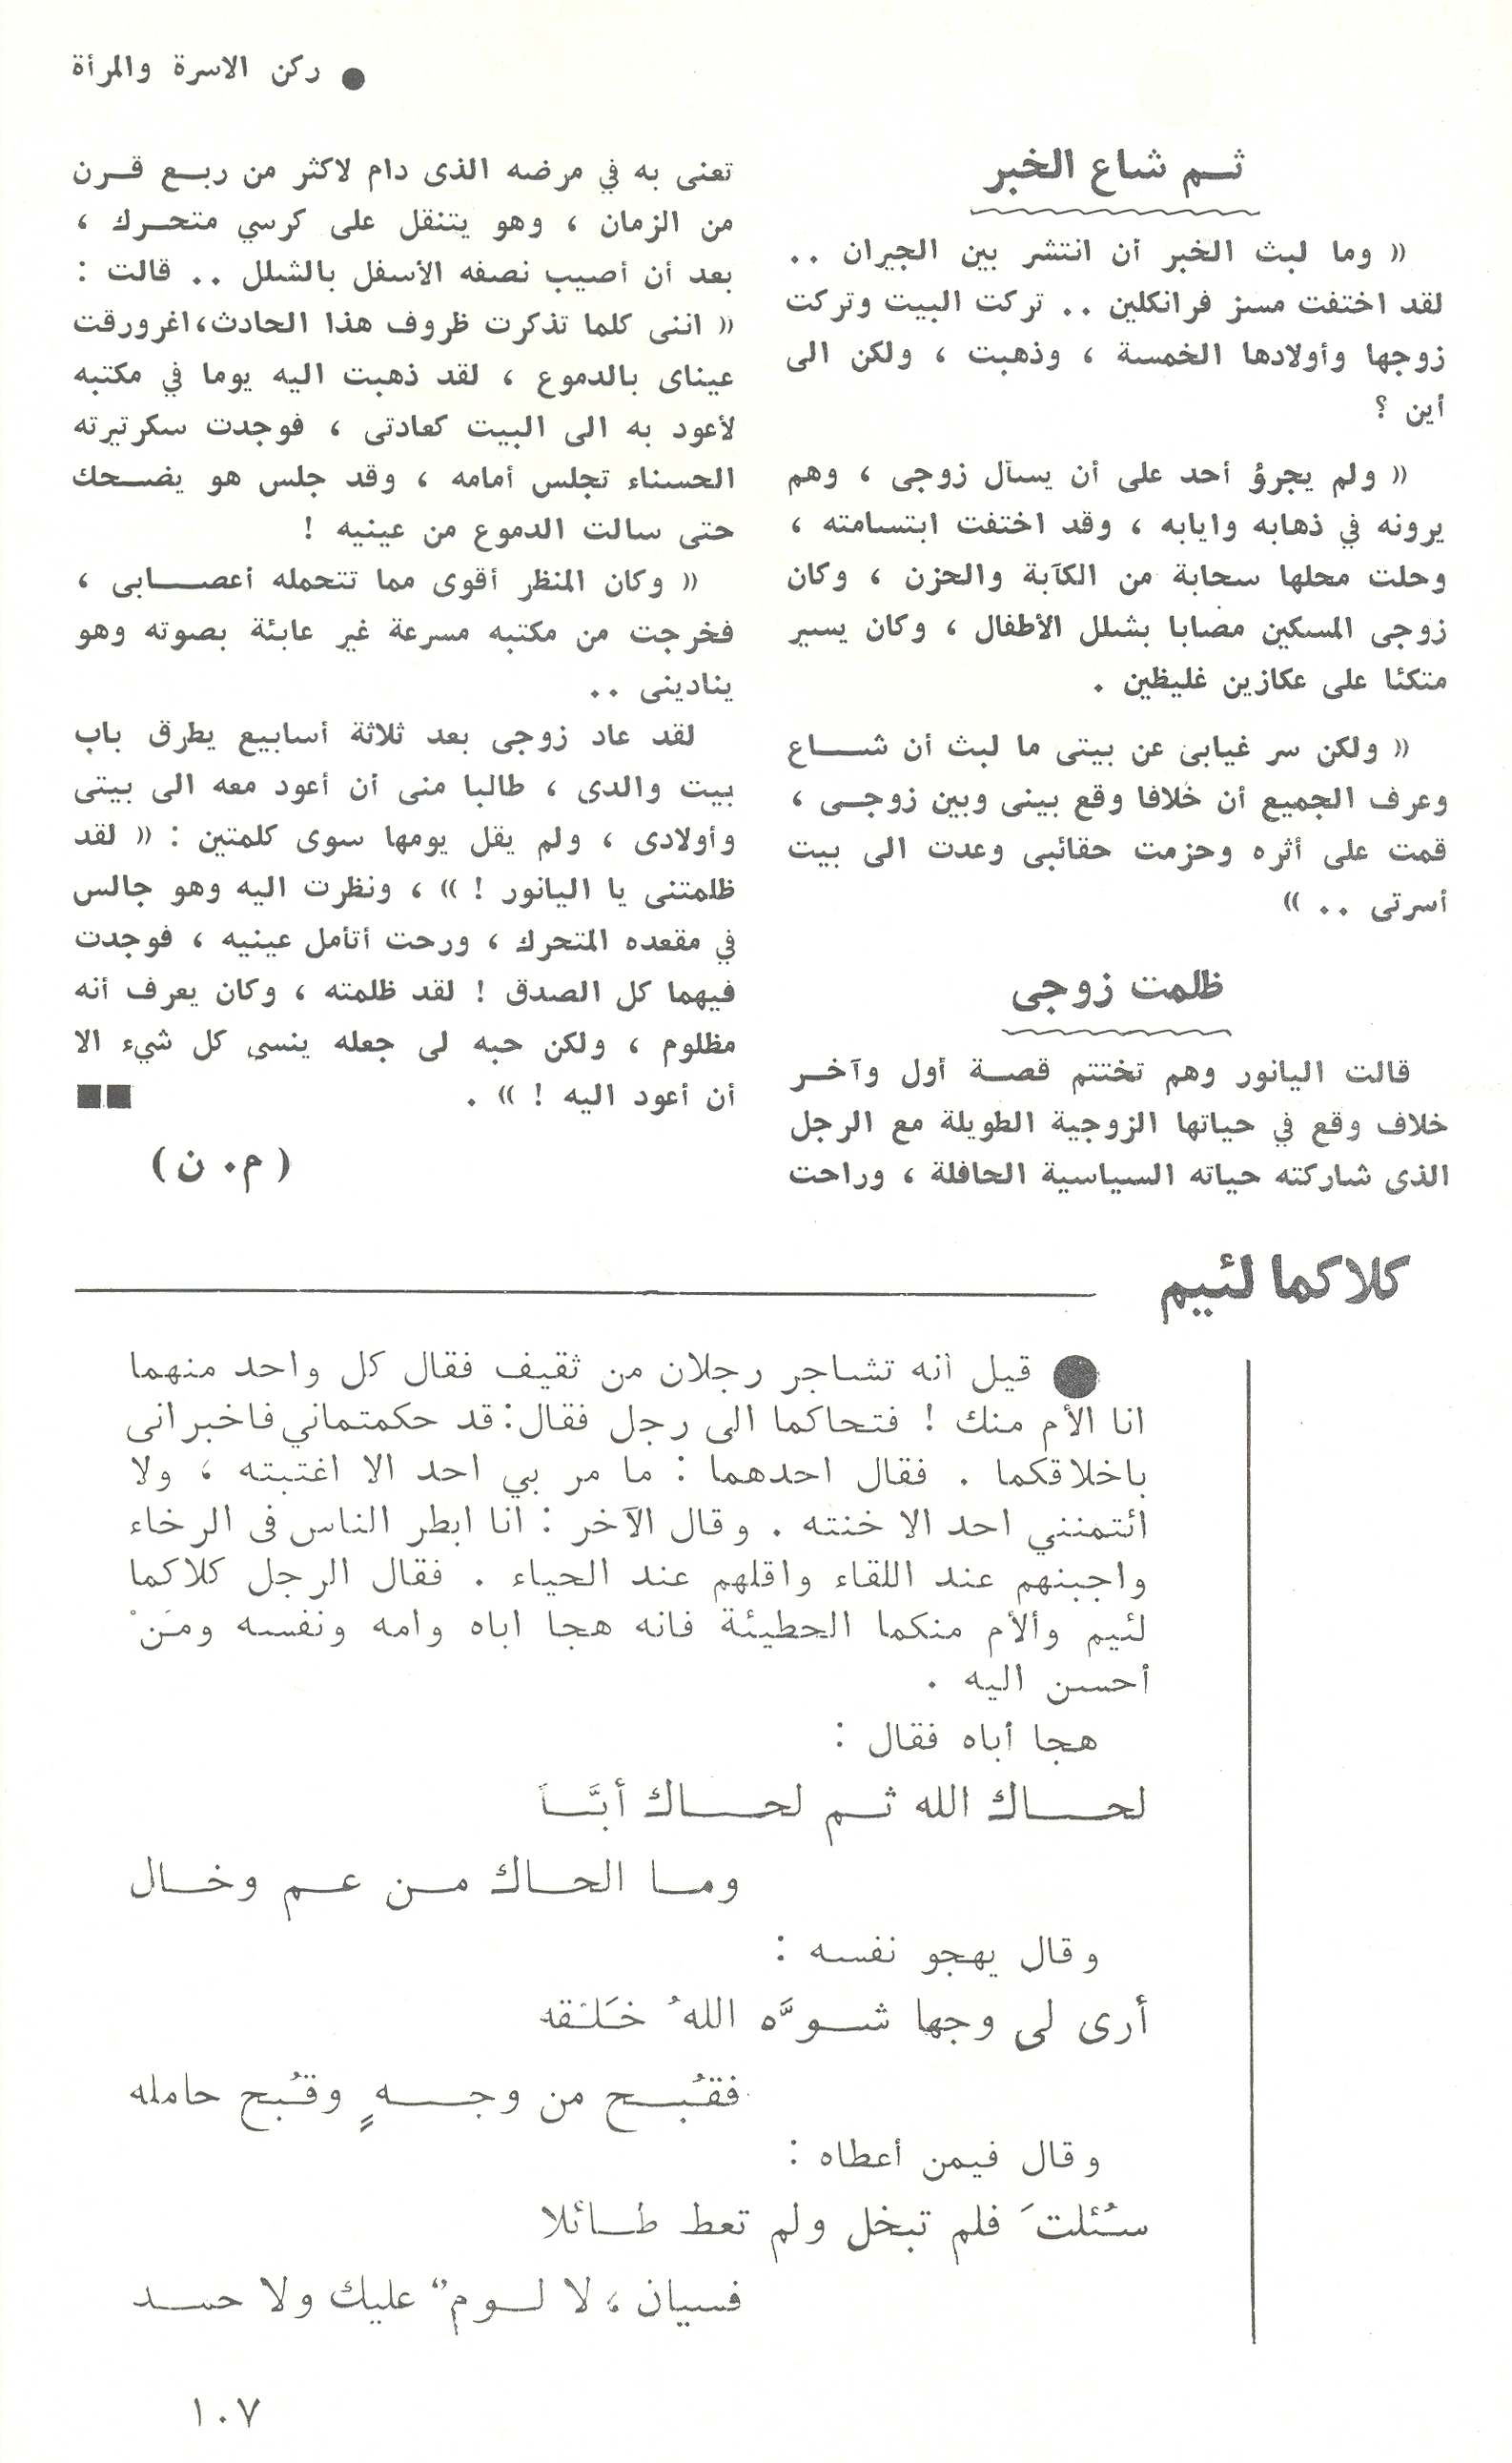 ● ركن الاسرة والمرأة
ثـم شاع الخبر
« وما لبث الخبر أن انتشر بين الجيران ..
لقد اختفت مسز فرانكلين .. تركت البيت وتركت
زوجها وأولادها الخمسة ، وذهبت ، ولكن الى
أين ؟
« ولم يجرؤ أحد على أن يسأل زوجى ، وهم
يرونه في ذهابه وايابه ، وقد اختفت ابتسامته ،
وحلت محلها سحابة من الكآبة والحزن ، وكان
زوجى المسكين مصابا بشلل الأطفال ، وكان يسير
متكئا على عكازين غليظين .
« ولكن سر غيابى عن بيتى ما لبث أن شـــاع
وعرف الجميع أن خلافا وقع بينى وبين زوجــى ،
قمت على أثره وحزمت حقائبى وعدت الى بيت
أسرتى .. »
ظلمت زوجى
قالت اليانور وهم تختتم قصـة أول وآخـر
خلاف وقع في حياتها الزوجية الطويلة مع الرجل
الذى شاركته حياته السياسية الحافلة ، وراحت
تعنى به في مرضه الذى دام لاكثر من ربـع قـرن
من الزمان ، وهو يتنقل على كرسي متحـرك ،
بعد أن أصيب نصفه الأسفل بالشلل .. قالت :
« اننى كلما تذكرت ظروف هذا الحادث،اغرورقت
عيناى بالدموع ، لقد ذهبت اليه يوما في مكتبه
لأعود به الى البيت كعادتى ، فوجدت سكرتيرته
الحسناء تجلس أمامه ، وقد جلس هو يضـحك
حتى سالت الدموع من عينيه !
« وكان المنظر أقوى مما تتحمله أعصـــابى ،
فخرجت من مكتبه مسرعة غير عابئة بصوته وهو
ينادينى ..
لقد عاد زوجى بعد ثلاثة أسابيع يطرق باب
بيت والدى ، طالبا منى أن أعود معه الى بيتى
وأولادى ، ولم يقل يومها سوى كلمتين : « لقد
ظلمتنى يا اليانور ! » ، ونظرت اليه وهو جالس
في مقعده المتحرك ، ورحت أتأمل عينيه ، فوجدت
فيهما كل الصدق ! لقد ظلمته ، وكان يعرف أنه
مظلوم ، ولكن حبه لى جعله ينسى كل شيء الا
أن أعود اليه ! » . ■■
( م . ن )
كلاكما لئيم
● قيل أنه تشاجر رجلان من ثقيف فقال كل واحد منهما
انا الأم منك ! فتحاكما الى رجل فقال: قد حكمتماني فاخبرانى
باخلاقكما . فقال احدهما : ما مر بي احد الا اغتبته ، ولا
ائتمنني احد الا خنته . وقال الآخر : انا ابطر الناس فى الرخاء
واجبنهم عند اللقاء واقلهم عند الحياء . فقال الرجل كلاكما
لئيم وألأم منكما الحطيئة فانه هجا اباه وامه ونفسه ومَنْ
أحسن اليه .
هجا أباه فقال :
لحـــاك الله ثـم لحـــاك أبَّــاً
ومـا الحـاك مـن عـم وخـال
وقال يهجو نفسه :
أرى لى وجها شـوَّه اللهُ خَلـْقه
فقُبـح من وجـــهٍ وقُبح حامله
وقال فيمن أعطاه :
سُئلتَ فلم تبخل ولم تعط طـائلا
فسيان ، لا لـومٌ عليك ولا حمـد
١٠٧